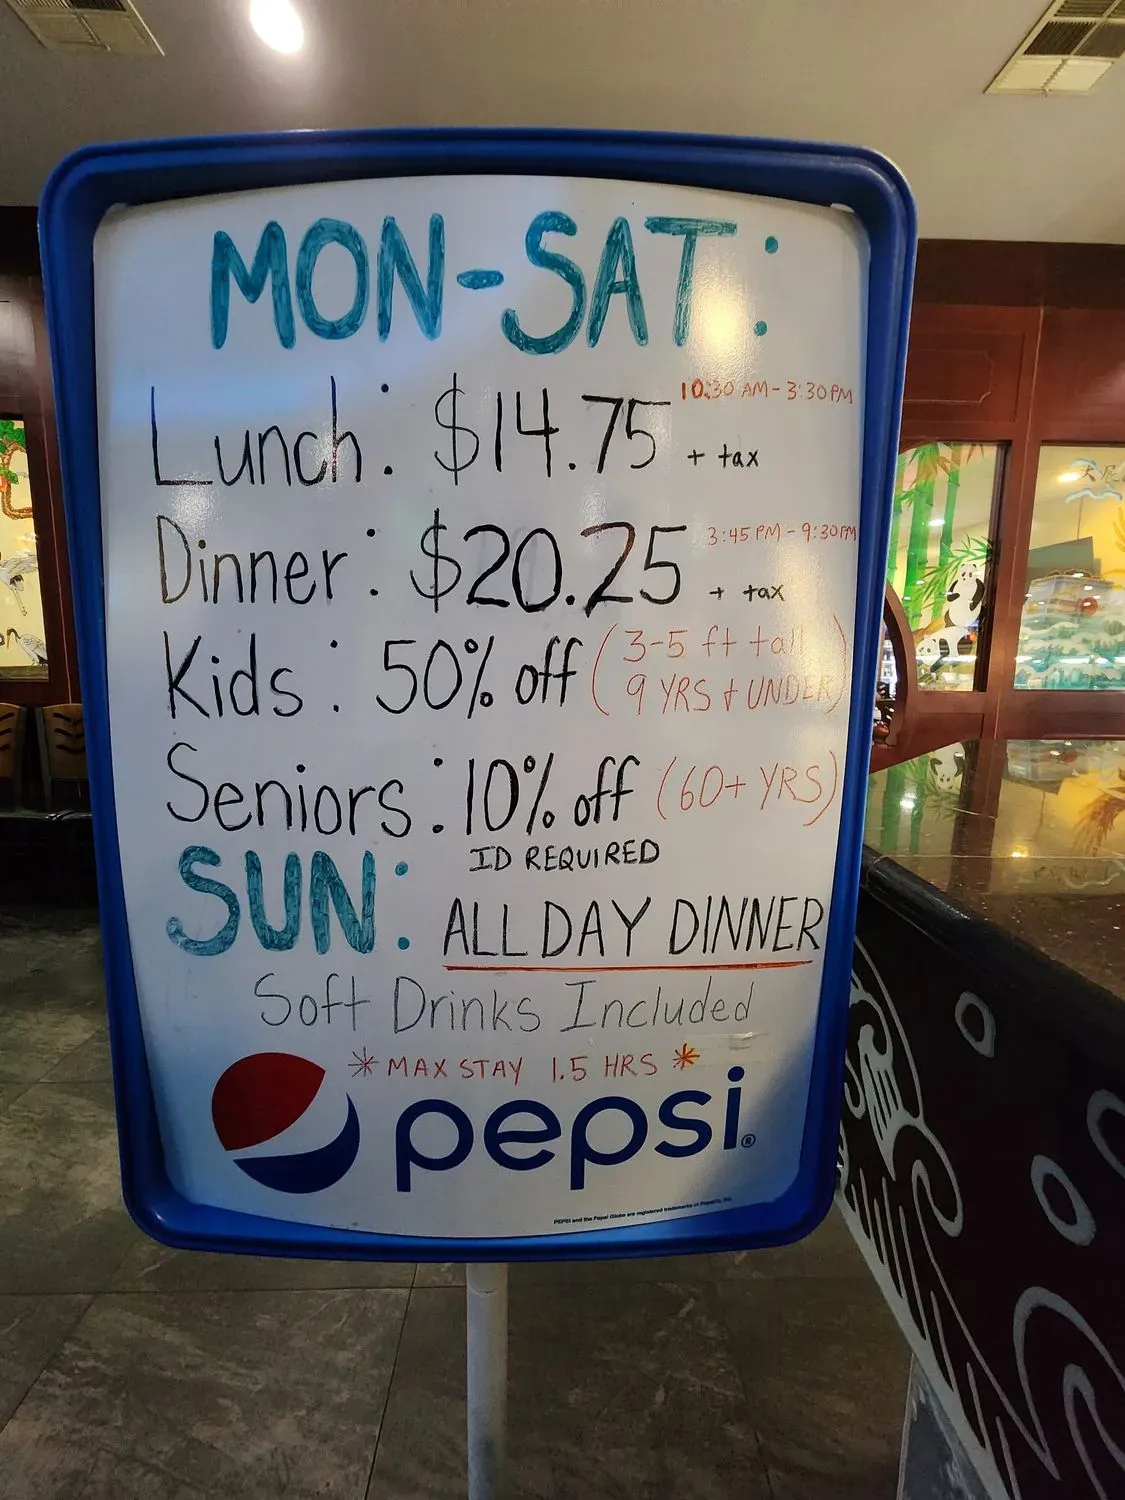 MON-SAT:
10:30 AM - 3:30 PM
Lunch: $14.75 + tax
3:45 PM - 9:30 PM
Dinner: $20.25 + tax
Kids: 50% off (3-5 ft tall
9 YRS & UNDER)
Seniors: 10% off (60+ YRS)
ID REQUIRED
SUN: ALL DAY DINNER
Soft Drinks Included
* MAX STAY 1.5 HRS *
pepsi®
PEPSI and the Pepsi Globe are registered trademarks of PepsiCo, Inc.